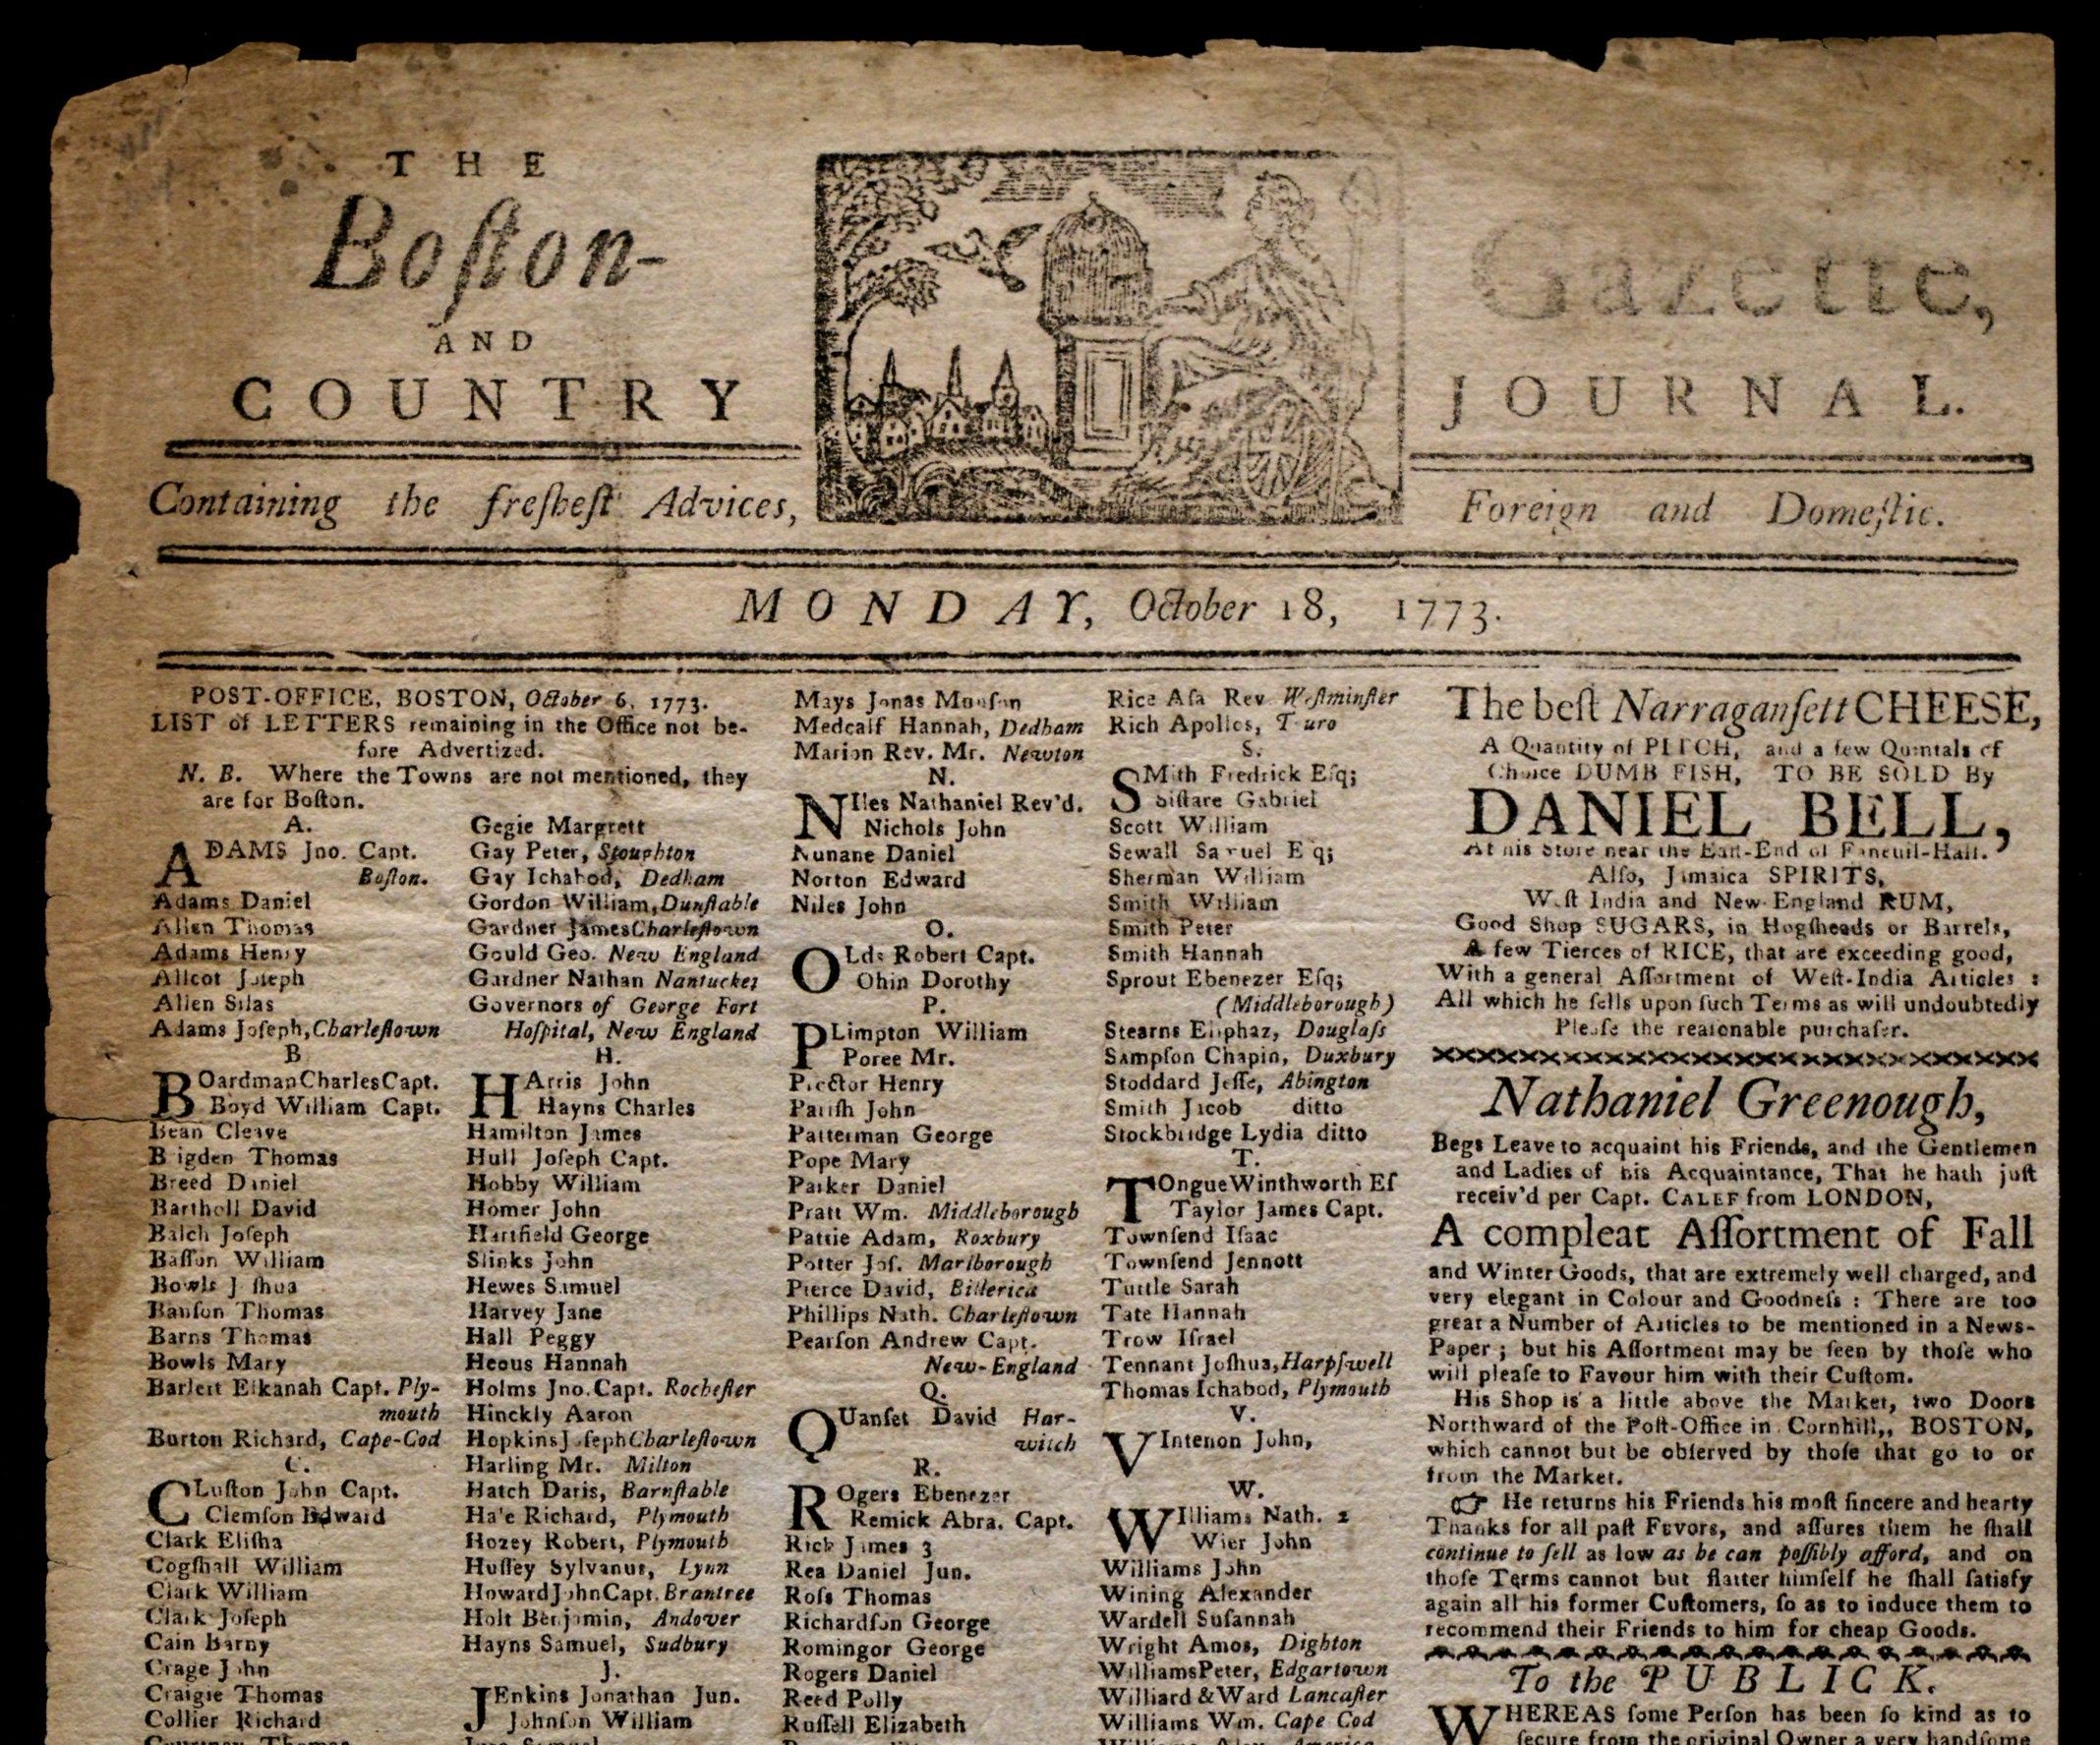 THE
Boſton-
AND
COUNTRY
Gazette,
JOURNAL.
Containing the freſheſt Advices,
Foreign and Domeſtic.
MONDAY, October 18, 1773.
POST-OFFICE, BOSTON, October 6, 1773.
LIST of LETTERS remaining in the Office not be-
fore Advertized.
N. B. Where the Towns are not mentioned, they
are for Boſton.
A.
ADAMS Jno. Capt.
Boſton.
Adams Daniel
Allen Thomas
Adams Henry
Allcot Joſeph
Allen Silas
Adams Joſeph, Charleſtown
B
BOardman Charles Capt.
Boyd William Capt.
Bean Cleave
B igden Thomas
Breed Daniel
Bartholl David
Balch Joſeph
Baſſon William
Bowls J ſhua
Banſon Thomas
Barns Thomas
Bowls Mary
Barlett Elkanah Capt. Ply-
mouth
Burton Richard, Cape-Cod
C.
CLuſton John Capt.
Clemſon Edward
Clark Eliſha
Cogſhall William
Clark William
Clark Joſeph
Cain Barny
Crage John
Craigie Thomas
Collier Richard
Gegie Margrett
Gay Peter, Stoughton
Gay Ichabod, Dedham
Gordon William, Dunſtable
Gardner James Charleſtown
Gould Geo. New England
Gardner Nathan Nantucket
Governors of George Fort
Hoſpital, New England
H.
HArris John
Hayns Charles
Hamilton James
Hull Joſeph Capt.
Hobby William
Homer John
Hartfield George
Slinks John
Hewes Samuel
Harvey Jane
Hall Peggy
Heous Hannah
Holms Jno. Capt. Rocheſter
Hinckly Aaron
Hopkins Joſeph Charleſtown
Harling Mr. Milton
Hatch Daris, Barnſtable
Ha'e Richard, Plymouth
Hozey Robert, Plymouth
Huſſey Sylvanus, Lynn
Howard John Capt. Brantree
Holt Benjamin, Andover
Hayns Samuel, Sudbury
J.
JEnkins Jonathan Jun.
Johnſon William
Mays Jonas Monſon
Medcalf Hannah, Dedham
Marion Rev. Mr. Newton
N.
NIles Nathaniel Rev'd.
Nichols John
Nunane Daniel
Norton Edward
Niles John
O.
OLds Robert Capt.
Ohin Dorothy
P.
PLimpton William
Poree Mr.
Proctor Henry
Pariſh John
Patterman George
Pope Mary
Parker Daniel
Pratt Wm. Middleborough
Pattie Adam, Roxbury
Potter Joſ. Marlborough
Pierce David, Billerica
Phillips Nath. Charleſtown
Pearſon Andrew Capt.
New-England
Q.
QUanſet David Har-
witch
R.
ROgers Ebenezer
Remick Abra. Capt.
Rick James 3
Rea Daniel Jun.
Roſs Thomas
Richardſon George
Romingor George
Rogers Daniel
Reed Polly
Ruſſell Elizabeth
Rice Aſa Rev Weſtminſter
Rich Apollos, T uro
S.
SMith Fredrick Eſq;
Siſtare Gabriel
Scott William
Sewall Samuel E q;
Sherman William
Smith William
Smith Peter
Smith Hannah
Sprout Ebenezer Eſq;
(Middleborough)
Stearns Eliphaz, Douglaſs
Sampſon Chapin, Duxbury
Stoddard Jeſſe, Abington
Smith Jacob ditto
Stockbridge Lydia ditto
T.
TOngue Winthworth Eſ
Taylor James Capt.
Townſend Iſaac
Townſend Jennott
Tuttle Sarah
Tate Hannah
Trow Iſrael
Tennant Joſhua, Harpſwell
Thomas Ichabod, Plymouth
V.
VIntenon John,
W.
WIlliams Nath. 2
Wier John
Williams John
Wining Alexander
Wardell Suſannah
Wright Amos, Dighton
Williams Peter, Edgartown
Williard & Ward Lancaſter
Williams Wm. Cape Cod
The beſt Narraganſett CHEESE,
A Quantity of PITCH, and a few Quintals of
Choice DUMB FISH, TO BE SOLD By
DANIEL BELL,
At his Store near the Eaſt-End of Faneuil-Hall.
Alſo, Jamaica SPIRITS,
Weſt India and New-England RUM,
Good Shop SUGARS, in Hogſheads or Barrels,
A few Tierces of RICE, that are exceeding good,
With a general Aſſortment of Weſt-India Articles :
All which he ſells upon ſuch Terms as will undoubtedly
Pleaſe the reaſonable purchaſer.
Nathaniel Greenough,
Begs Leave to acquaint his Friends, and the Gentlemen
and Ladies of his Acquaintance, That he hath juſt
receiv'd per Capt. CALEF from LONDON,
A compleat Aſſortment of Fall
and Winter Goods, that are extremely well charged, and
very elegant in Colour and Goodneſs : There are too
great a Number of Articles to be mentioned in a News-
Paper ; but his Aſſortment may be ſeen by thoſe who
will pleaſe to Favour him with their Cuſtom.
His Shop is a little above the Market, two Doors
Northward of the Poſt-Office in Cornhill,, BOSTON,
which cannot but be obſerved by thoſe that go to or
from the Market.
☞ He returns his Friends his moſt ſincere and hearty
Thanks for all paſt Fevors, and aſſures them he ſhall
continue to ſell as low as be can poſſibly afford, and on
thoſe Terms cannot but flatter himſelf he ſhall ſatisfy
again all his former Cuſtomers, ſo as to induce them to
recommend their Friends to him for cheap Goods.
To the PUBLICK.
WHEREAS ſome Perſon has been ſo kind as to
ſecure from the original Owner a very handſome